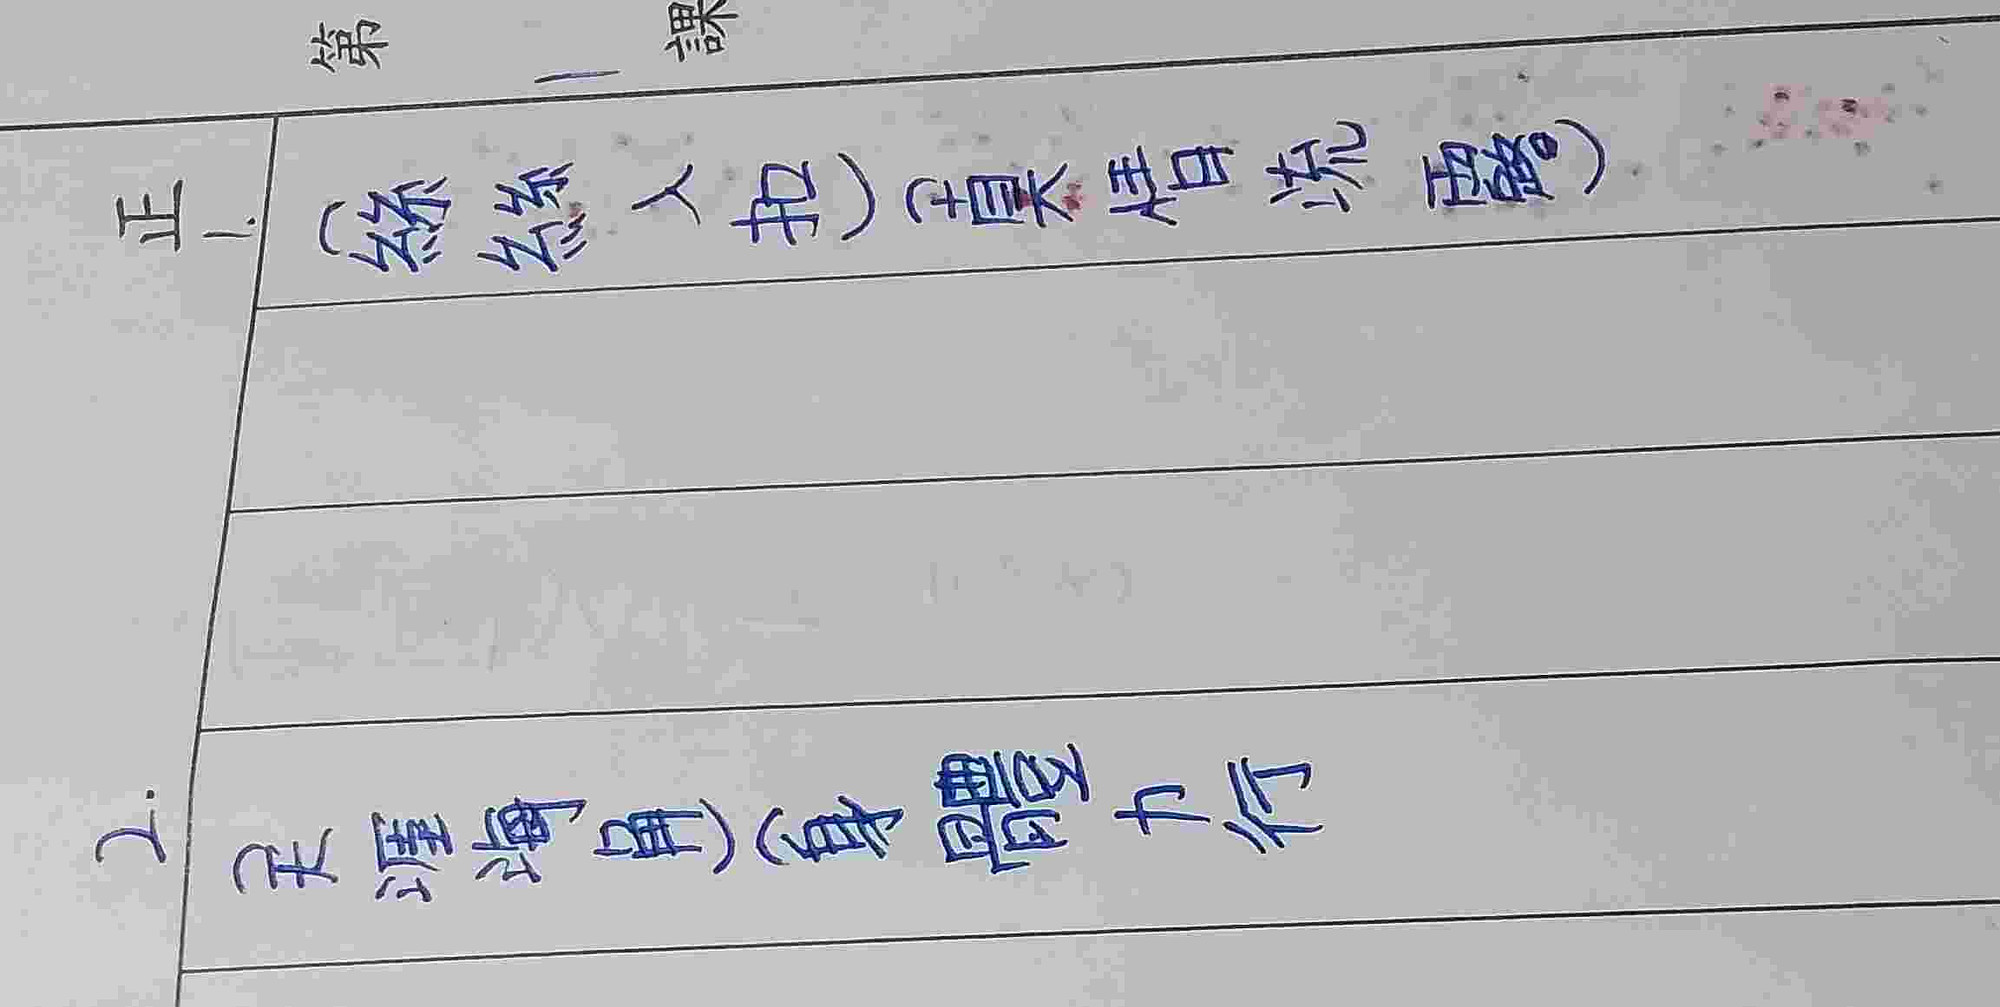 第一課
正
1. (絲絲入扣)(真情流露。)
2. (天涯海角)(身體力行